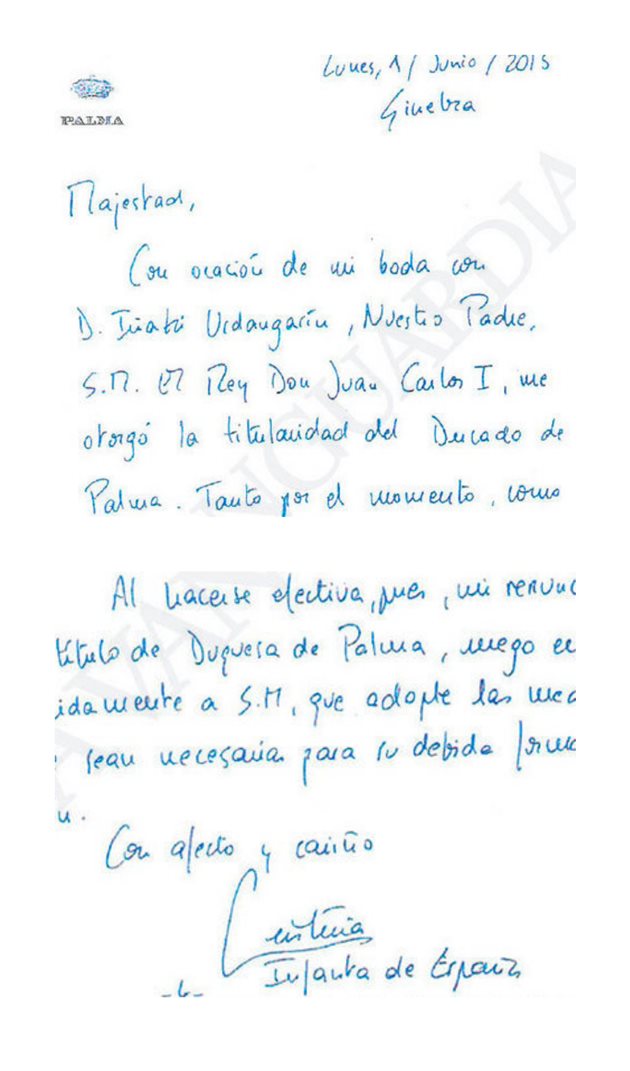 Lunes, 1 / Junio / 2015
Ginebra
PALMA
Majestad,
Con ocación de mi boda con
D. Iñaki Urdangarín, Nuestro Padre,
S.M. El Rey Don Juan Carlos I, me
otorgó la titularidad del Ducado de
Palma. Tanto por el momento, como
Al hacerse efectiva, pues, mi renunc
título de Duquesa de Palma, ruego en
idamente a S.M, que adopte las med
sean necesarias para su debida
n.
Con afecto y cariño
Cristina
Infanta de España
-6-
LA VANGUARDIA